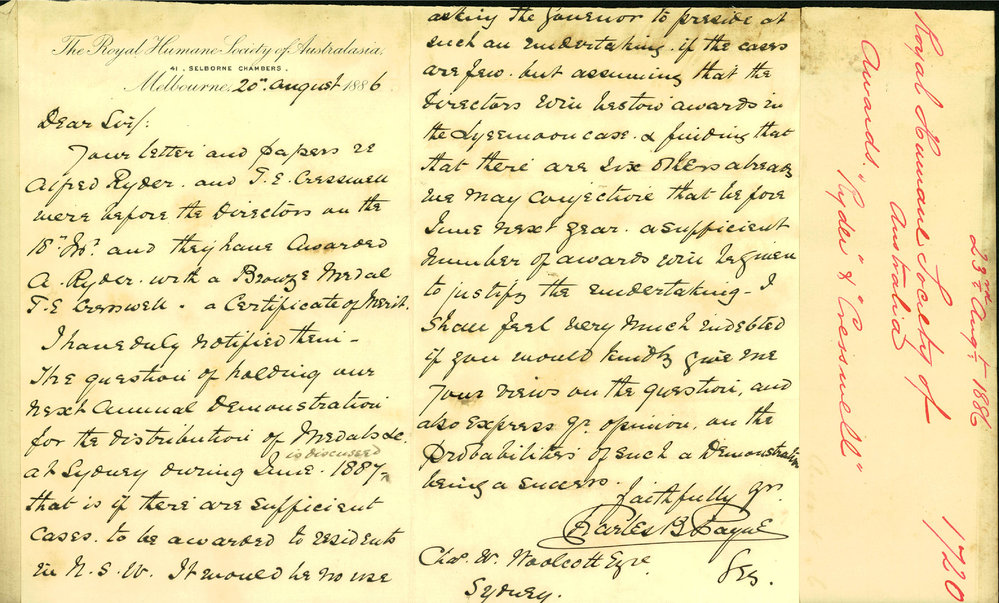 The Royal Humane Society of Australasia,
41, SELBORNE CHAMBERS,
Melbourne, 20th August 1886
Dear Sir/:
Your letter and papers re
Alfred Ryder. and T. E. Cresswell
were before the Directors on the
18th Inst. and they have Awarded
A. Ryder. with a Bronze Medal
T. E Cresswell - a Certificate of Merit.
I have duly notified them -
The question of holding our
next Annual Demonstration
for the distribution of Medals &c.
is discussed
at Sydney during June. 1887
that is if there are sufficient
cases. to be awarded to residents
in N. S. W. It would be no use
asking the Govenor to preside at
such an undertaking. if the cases
are few. but assuming that the
Directors will bestow awards in
the Lyeemoon case. & finding that
that there are six others already
we may conjecture that before
June next year. a sufficient
number of awards will be given
to justify the undertaking - I
shall feel very much indebted
if you would kindly give me
your views on the question, and
also express yr. opinion, on the
Probabilities of such a Demonstration
being a success.
Faithfully yr.
Charles B Payne
Sec.
Chas. W. Woolcott Esqre.
Sydney.
23rd Augt 1886 1720
Royal Humane Society of
Australia
Awards. "Ryder" & "Cresswell"